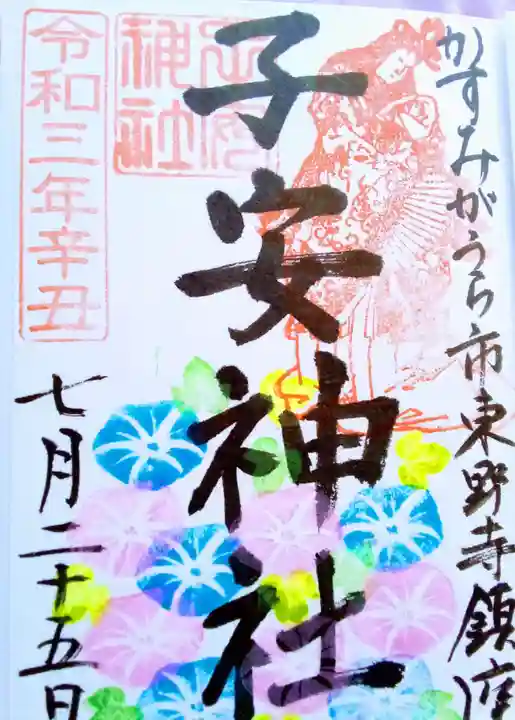 かすみがうら市東野寺鎮座
子安神社
神社
令和三年辛丑
七月二十五日